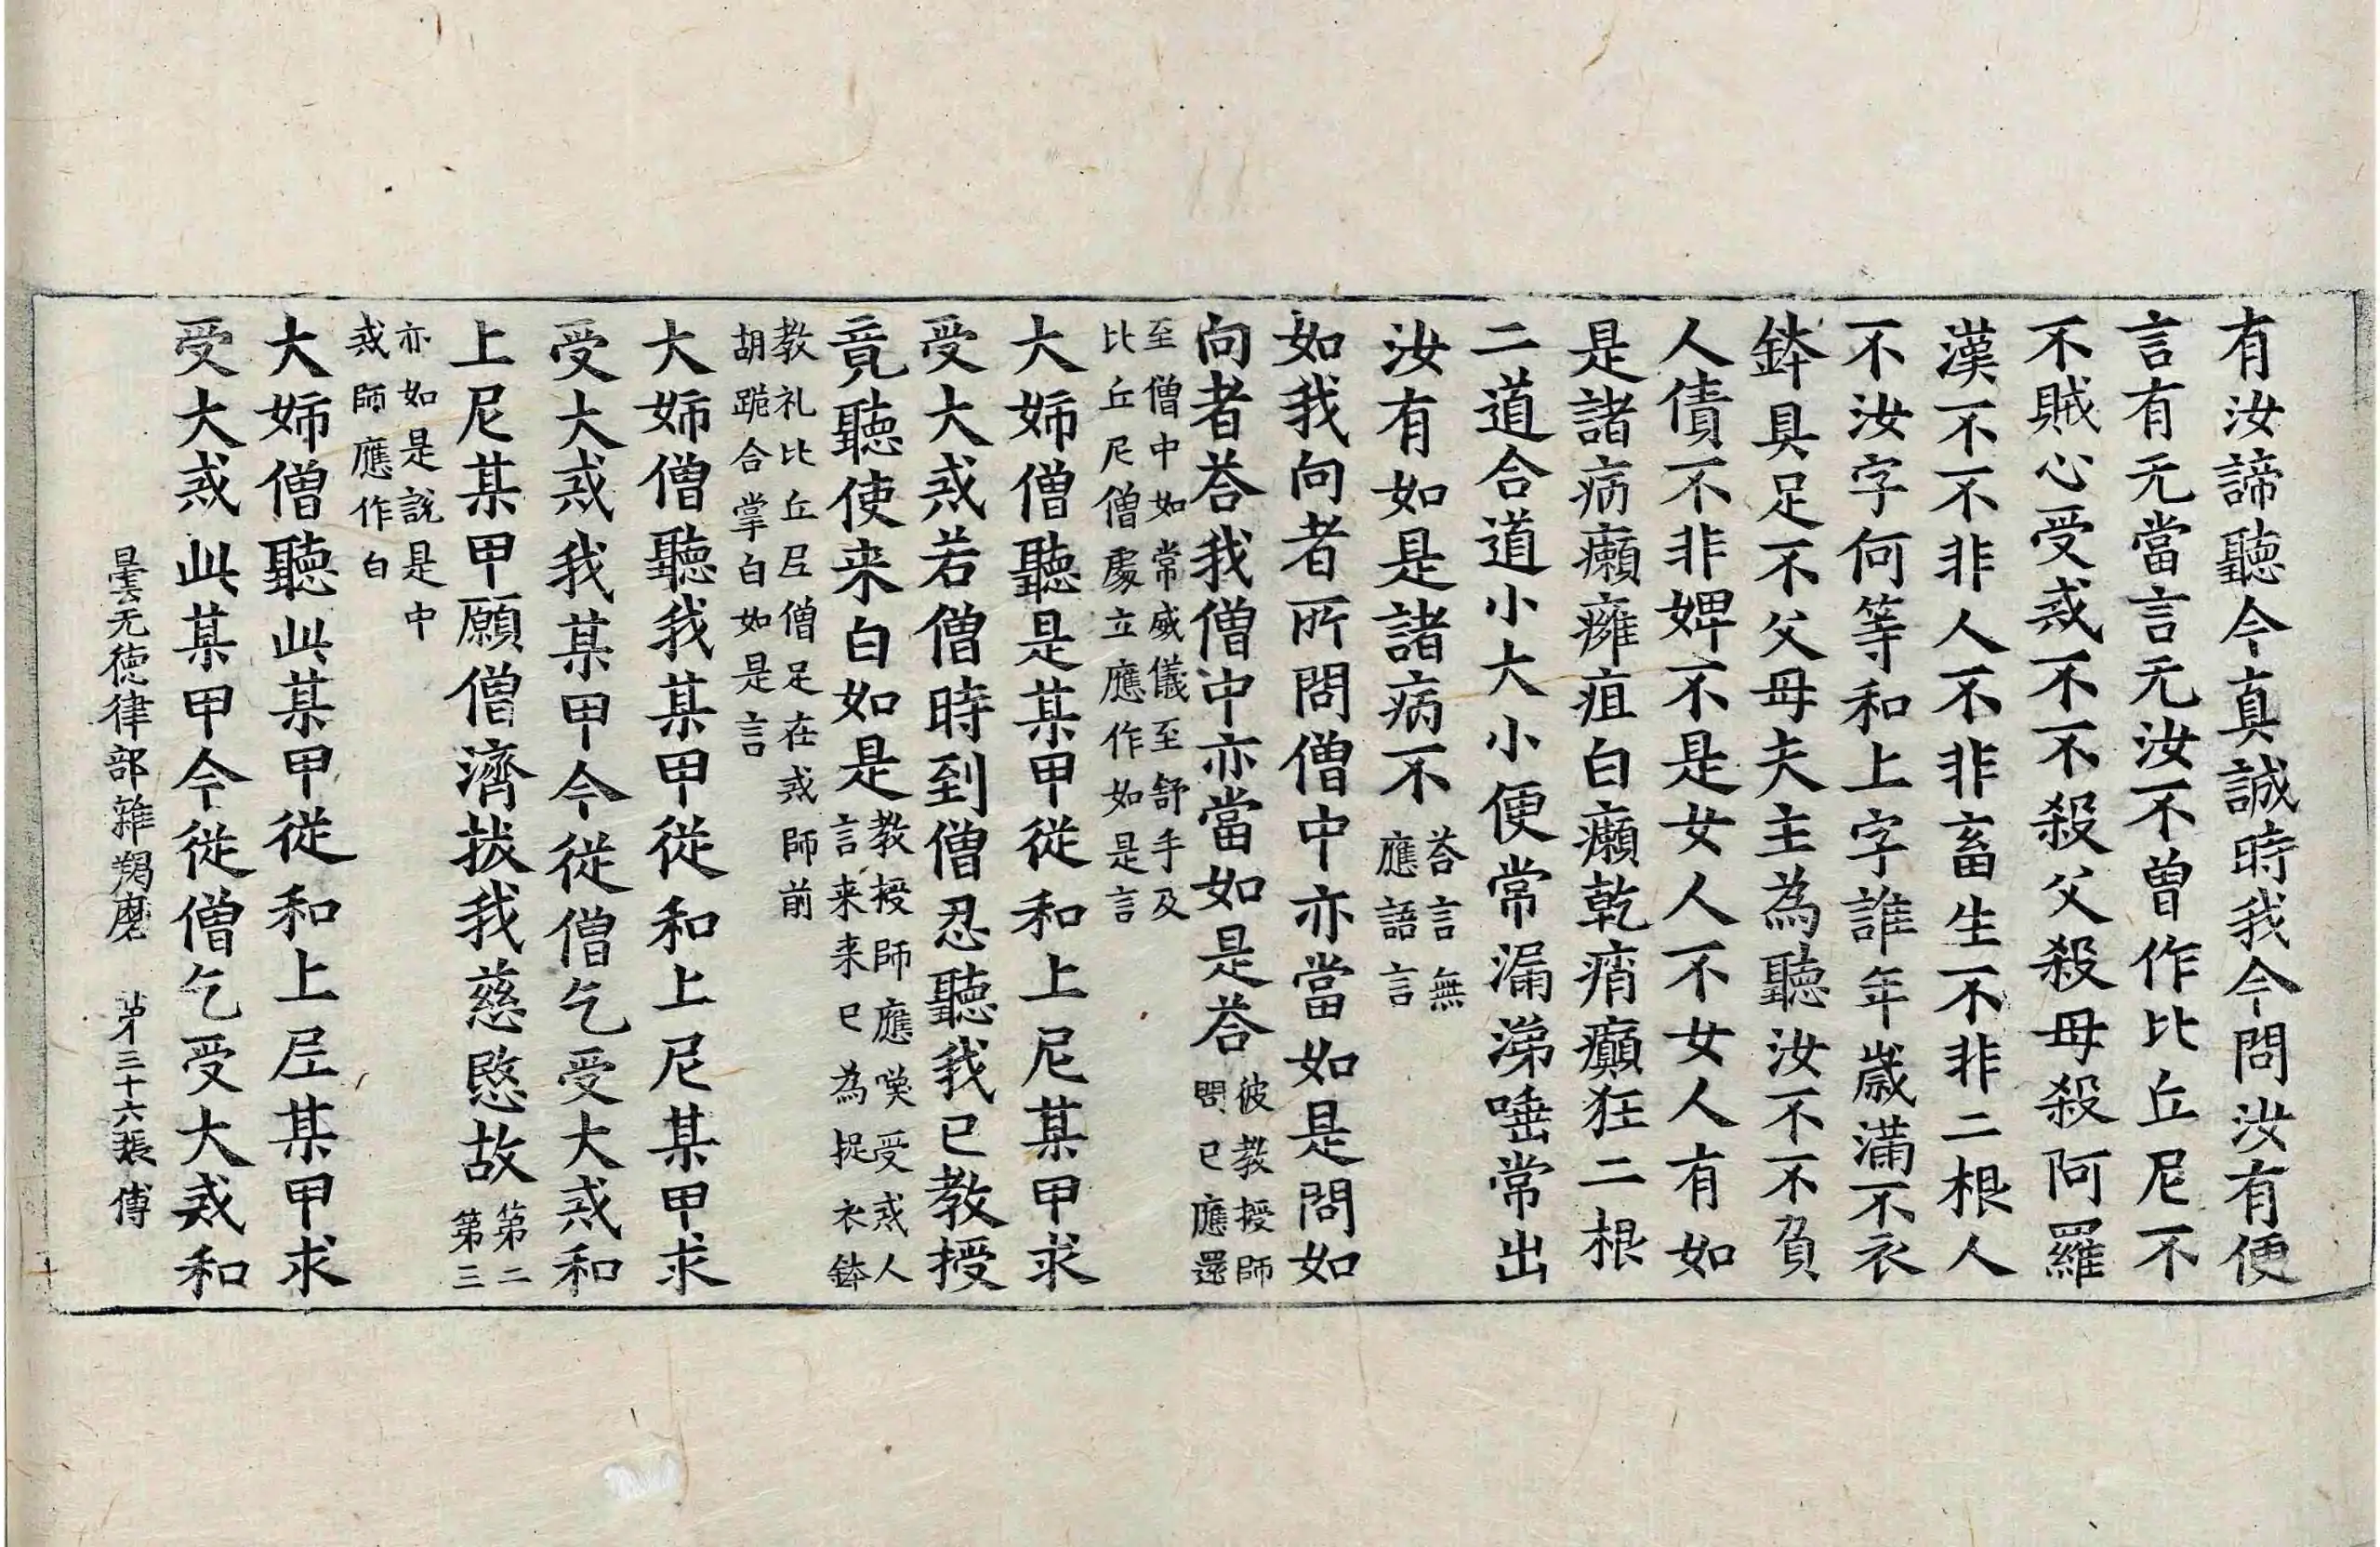 有汝諦聽今真誠時我今問汝有便
言有无當言无汝不曾作比丘尼不
不賊心受戒不不殺父殺母殺阿羅
漢不不非人不非畜生不非二根人
不汝字何等和上字誰年歲滿不衣
鉢具足不父母夫主為聽汝不不負
人債不非婢不是女人不女人有如
是諸病癩癰疽白癩乾痟癲狂二根
二道合道小大小便常漏涕唾常出
汝有如是諸病不荅言無
應語言
如我向者所問僧中亦當如是問如
向者荅我僧中亦當如是荅彼教授師
問已應還
至僧中如常威儀至舒手及
比丘尼僧處立應作如是言
大姉僧聽是某甲從和上尼某甲求
受大戒若僧時到僧忍聽我已教授
竟聽使来白如是教授師應喚受戒人
言来来已為捉衣鉢
教礼比丘尼僧足在戒師前
胡跪合掌白如是言
大姉僧聽我某甲從和上尼某甲求
受大戒我某甲今從僧乞受大戒和
上尼某甲願僧濟拔我慈愍故第二
第三
亦如是説是中
戒師應作白
大姉僧聽此某甲從和上尼某甲求
受大戒此某甲今從僧乞受大戒和
曇无徳律部雜羯磨　苐三十六張　傅